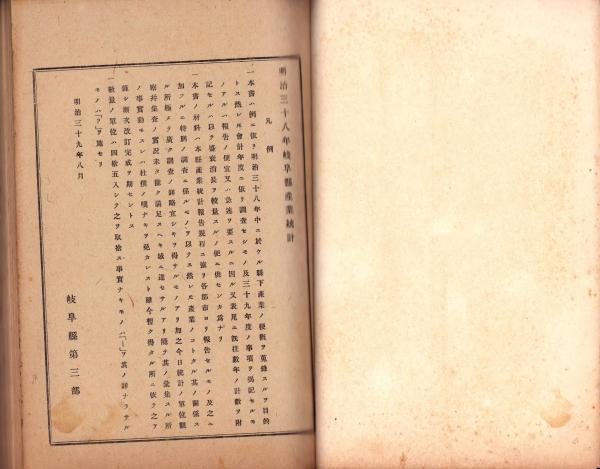 明治三十八年岐阜縣產業統計
凡例
一本書ハ例ニ依リ明治三十八年中ニ於ケル縣下產業ノ梗槪ヲ蒐錄スルヲ目的
トス然レモ會計年度ニ依リ調査セシモノ及三十九年度ノ事項ヲ揭記セルモ
ノアルハ報告ノ便宜又ハ急速ヲ要スルニ因ル又表尾ニ旣往數年ノ計數ヲ附
記セルハ以テ盛衰消長ヲ較量スルノ便ニ供センカ爲ナリ
一本書ノ材料ハ本縣產業統計報告規程ニ據リ各郡市ヨリ報告セルモノ及之ニ
加フルニ特別ノ調査ニ係ルモノヲ以テス然レモ產業ノコトタル其ノ關係ス
ル所極メテ廣ク調査ノ詳略宜シキヲ得サルモノアリ加之今日統計ノ單位觀
察幷集査ノ實況未タ能ク滿足スヘキ域ニ達セサルアリ隨テ其ノ彙集スル所
ノ事實動モスレハ杜撰ノ嘆ナキヲ免カレスト雖今暫ク得タル所ニ依テ之ヲ
錄シ漸次改訂完成ヲ期セントス
一數量ノ單位ハ四捨五入シテ之ヲ取捨ス事實ナキモノハ「ー」ヲ其ノ詳ナラサル
モノハ「?」ヲ施セリ
明治三十九年八月
岐阜縣第三部